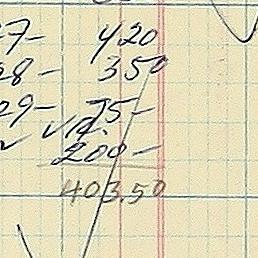 27- 420
28- 350
29- 75-
200-
403.50